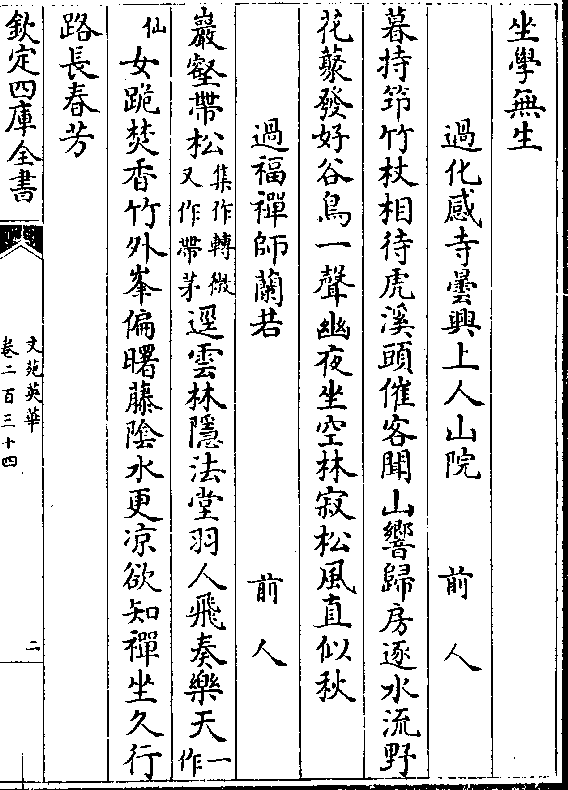 坐學無生
過化感寺曇興上人山院 前人
暮持筇竹杖相待虎溪頭催客聞山響歸房逐水流野
花藂發好谷鳥一聲幽夜坐空林寂松風直似秋
過福禪師蘭若 前人
巖壑帶松集作轉微又作帶茅逕雲林隱法堂羽人飛奏樂天一作
仙女跪焚香竹外峯偏曙藤陰水更凉欲知禪坐久行
路長春芳
欽定四庫全書
文苑英華
卷二百三十四
二